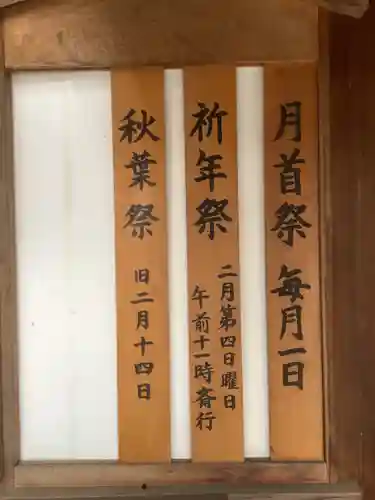 月首祭 毎月一日
祈年祭 二月第四日曜日
午前十一時斎行
秋葉祭 旧二月十四日